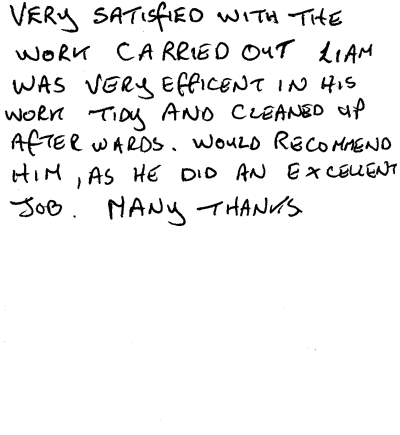 VERY SATISFIED WITH THE
WORK CARRIED OUT LIAM
WAS VERY EFFICENT IN HIS
WORK TIDY AND CLEANED UP
AFTER WARDS. WOULD RECOMMEND
HIM, AS HE DID AN EXCELLENT
JOB. MANY THANKS